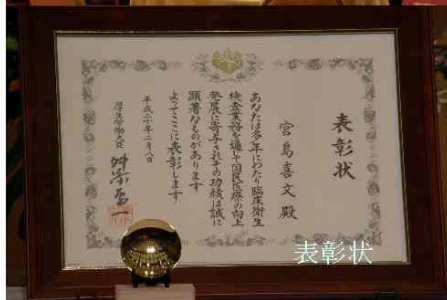 表彰状
宮島喜文 殿
あなたは多年にわたり臨床衛生
検査業務を通して国民医療の向上
発展に寄与されその功績は誠に
顕著なものがあります
よってここに表彰します
平成二十年二月八日
厚生労働大臣 舛添要一
表彰状